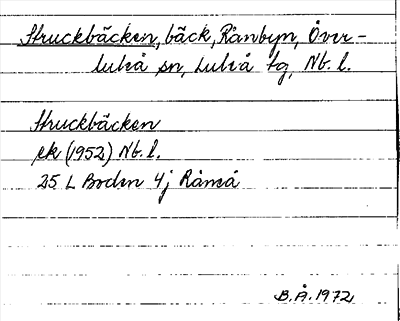 Struckbäcken, bäck, Rånbyn, Över-
luleå sn, Luleå tg, Nb. l.
Struckbäcken
ek (1952) Nb. l.
25 L Boden 4j Råneå
B.Å. 1972